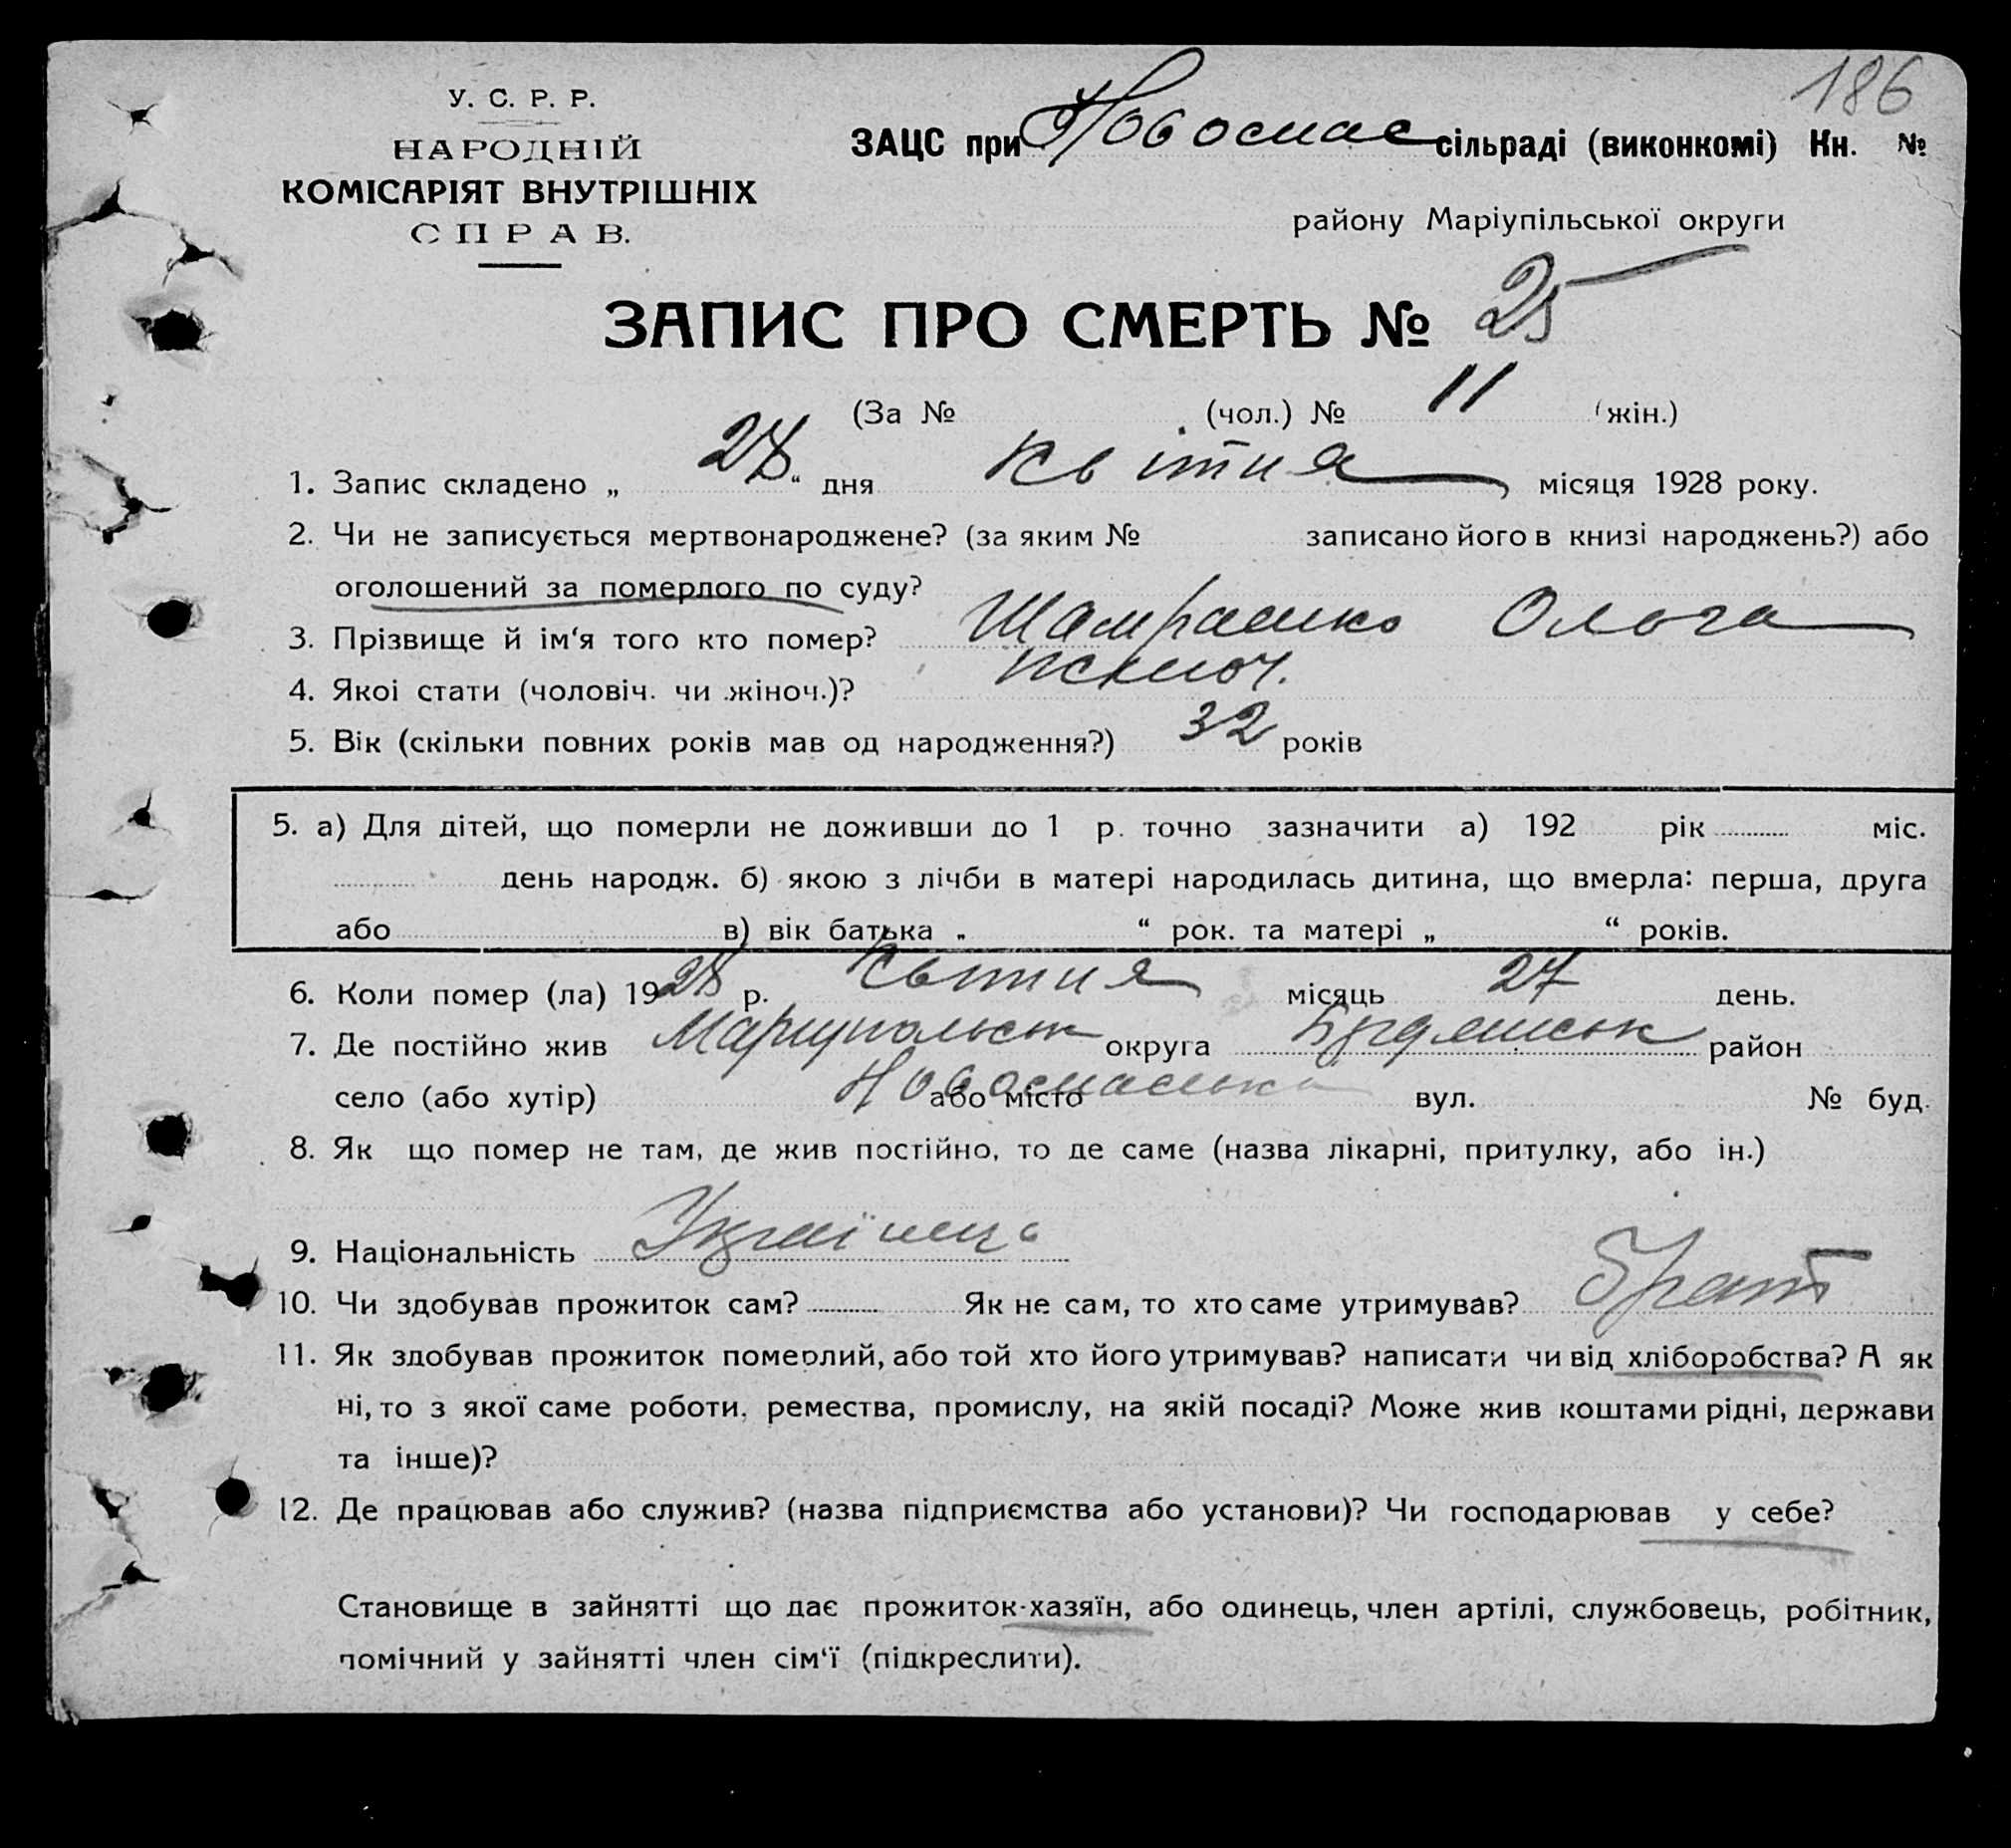 186
У. С. Р. Р.
НАРОДНІЙ
КОМІСАРІЯТ ВНУТРІШНІХ
СПРАВ.
ЗАЦС при Новоспас сільраді (виконкомі) Кн. №
району Маріупільської округи
ЗАПИС ПРО СМЕРТЬ № 25
(За № (чол.) № 11 (жін.)
1. Запис складено „ 28 “ дня Квітня місяця 1928 року.
2. Чи не записується мертвонароджене? (за яким № записано його в книзі народжень?) або
оголошений за померлого по суду?
3. Прізвище й ім‘я того кто помер? Шамрашко Ольга
4. Якоі стати (чоловіч. чи жіноч.)? жіноч.
5. Вік (скільки повних років мав од народження?) 32 років
5. а) Для дітей, що померли не доживши до 1 р. точно зазначити а) 192 рік міс.
день народж. б) якою з лічби в матері народилась дитина, що вмерла: перша, друга
або в) вік батька „ “ рок. та матері „ “ років.
6. Коли помер (ла) 1928 р. Квітня місяць 27 день.
7. Де постійно жив Мариупольськ округа Бердянськ район
село (або хутір) Новоспаська або місто вул. № буд.
8. Як що помер не там, де жив постійно, то де саме (назва лікарні, притулку, або ін.)
9. Національність Українць
10. Чи здобував прожиток сам? Як не сам, то хто саме утримував? Брат
11. Як здобував прожиток померлий, або той хто його утримував? написати чи від хліборобства? А як
ні, то з якої саме роботи, ремества, промислу, на якій посаді? Може жив коштами рідні, держави
та інше)?
12. Де працював або служив? (назва підприємства або установи)? Чи господарював у себе?
Становище в зайнятті що дає прожиток-хазяїн, або одинець, член артілі, службовець, робітник,
помічний у зайнятті член сім‘ї (підкреслити).